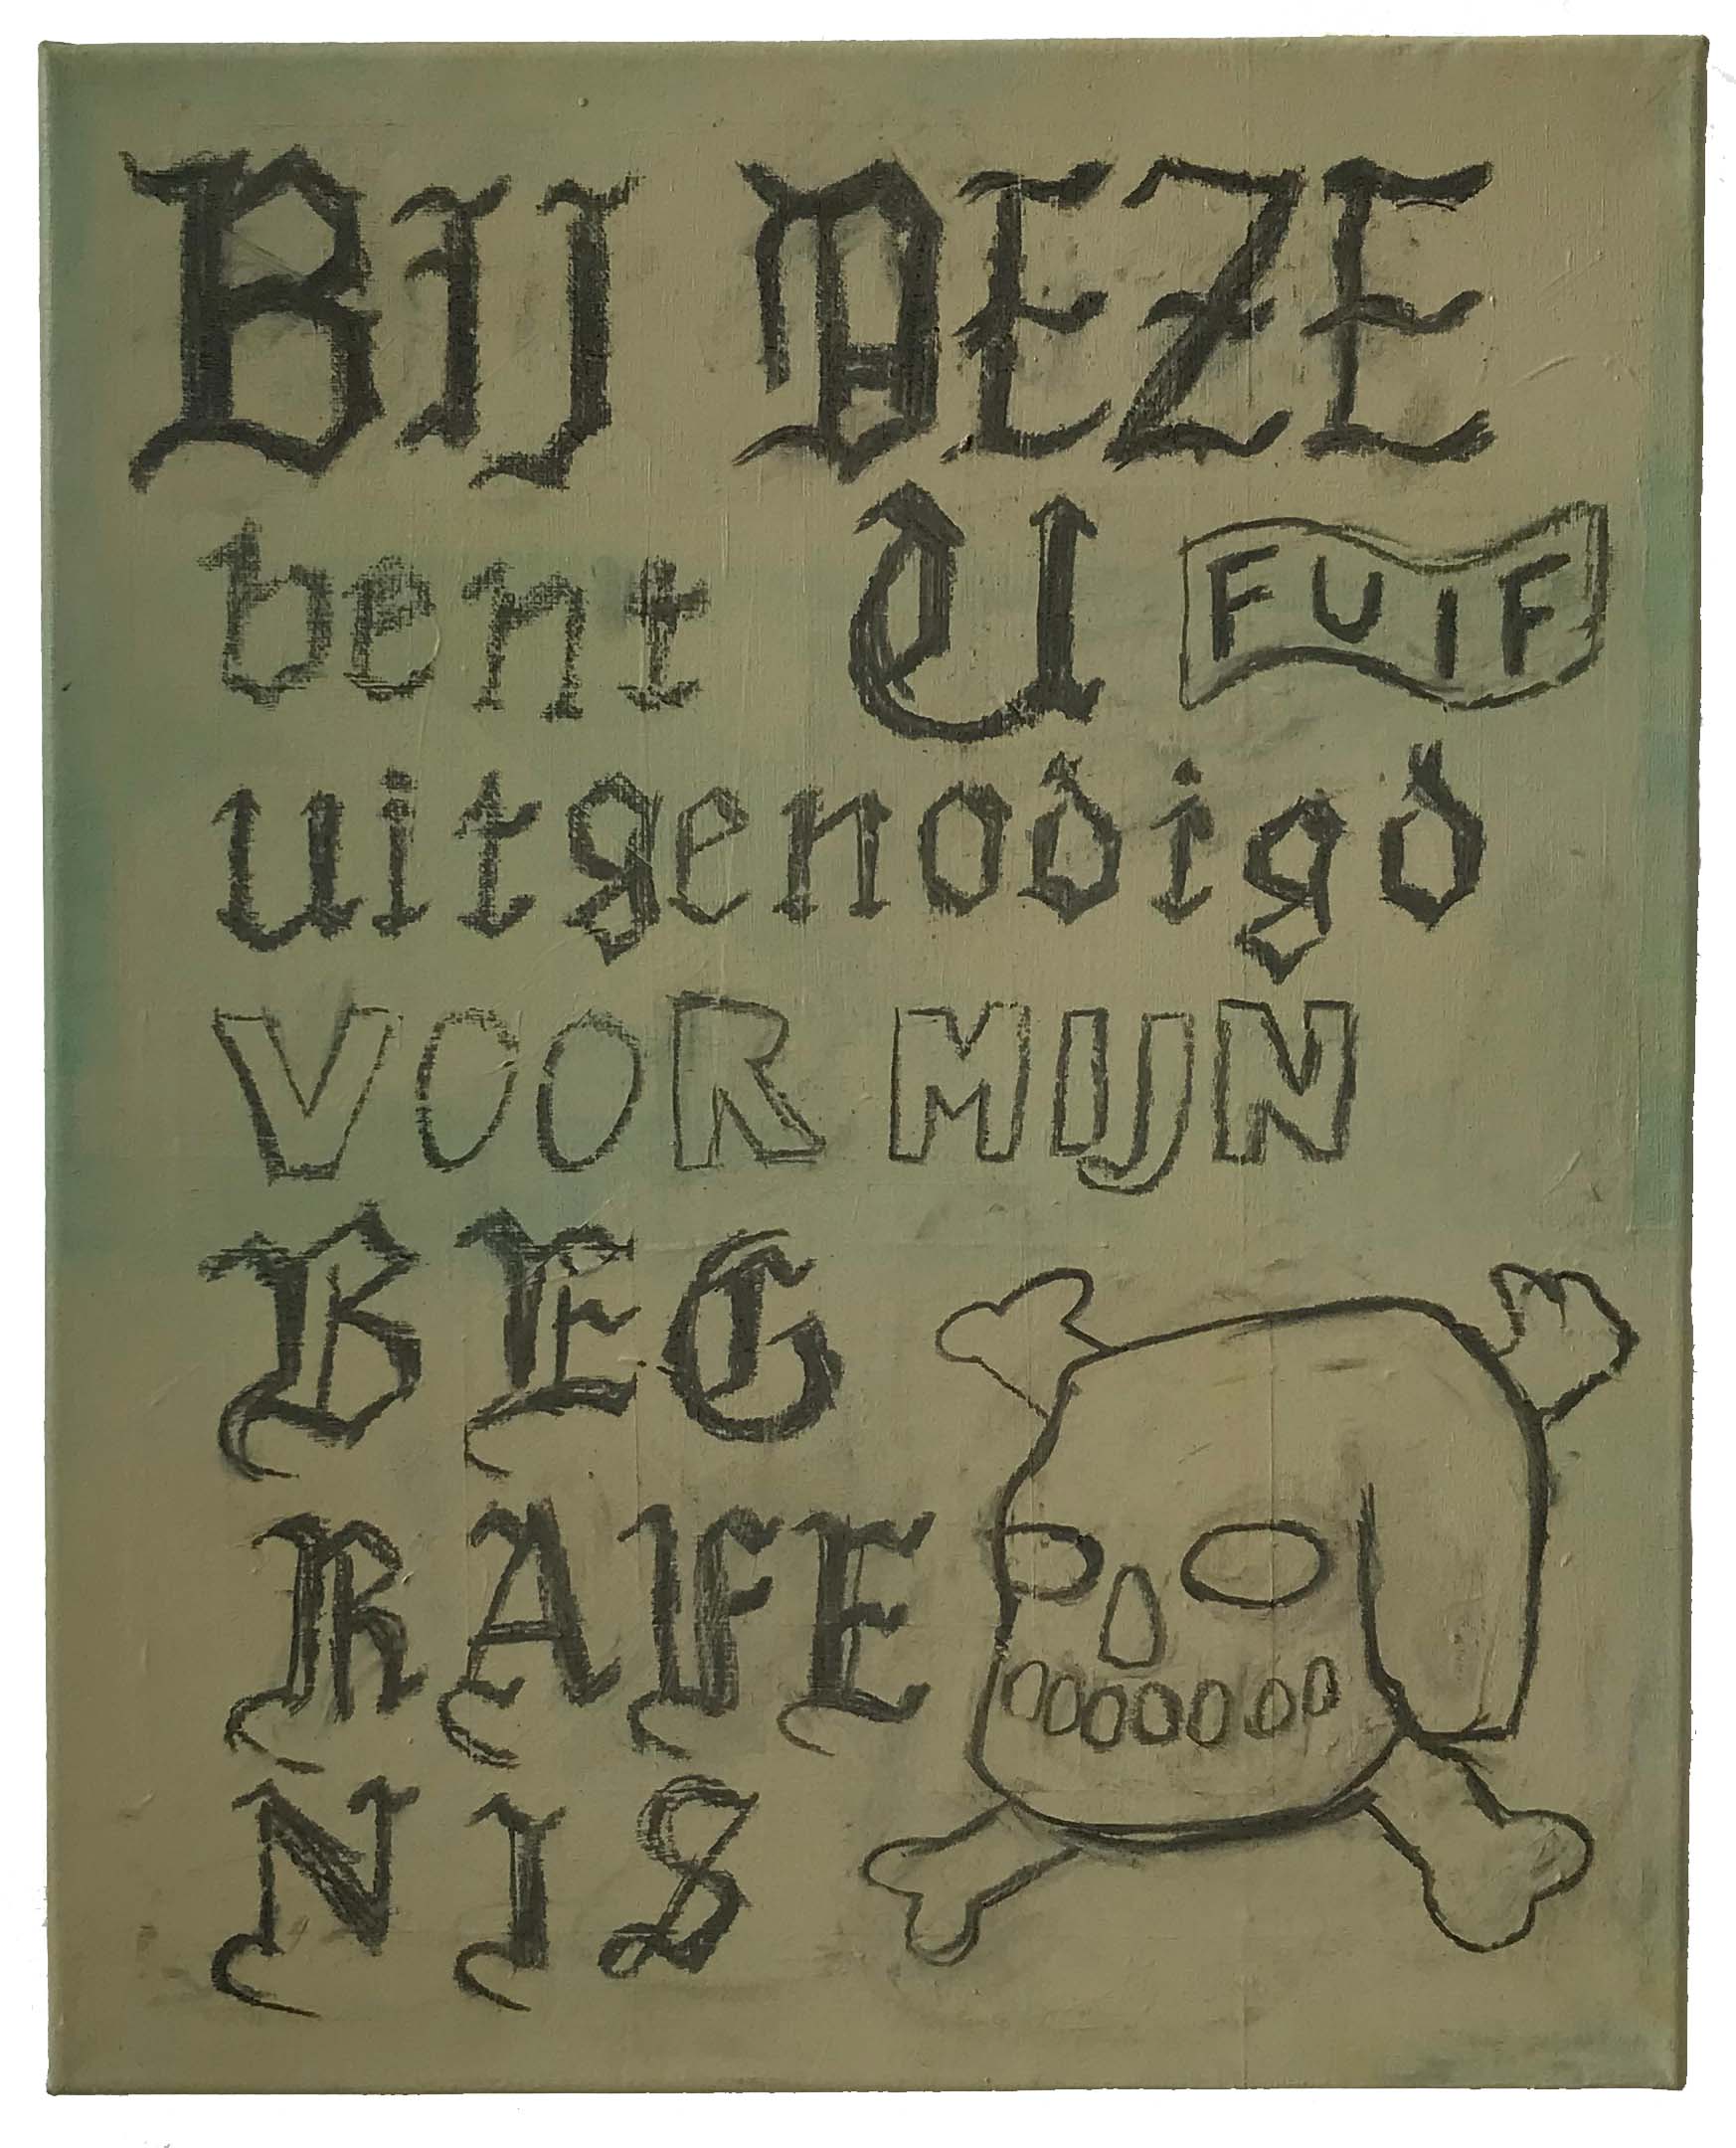 BIJ DEZE
bent U FUIF
uitgenodigd
VOOR MIJN
BEG
RAFE
NIS